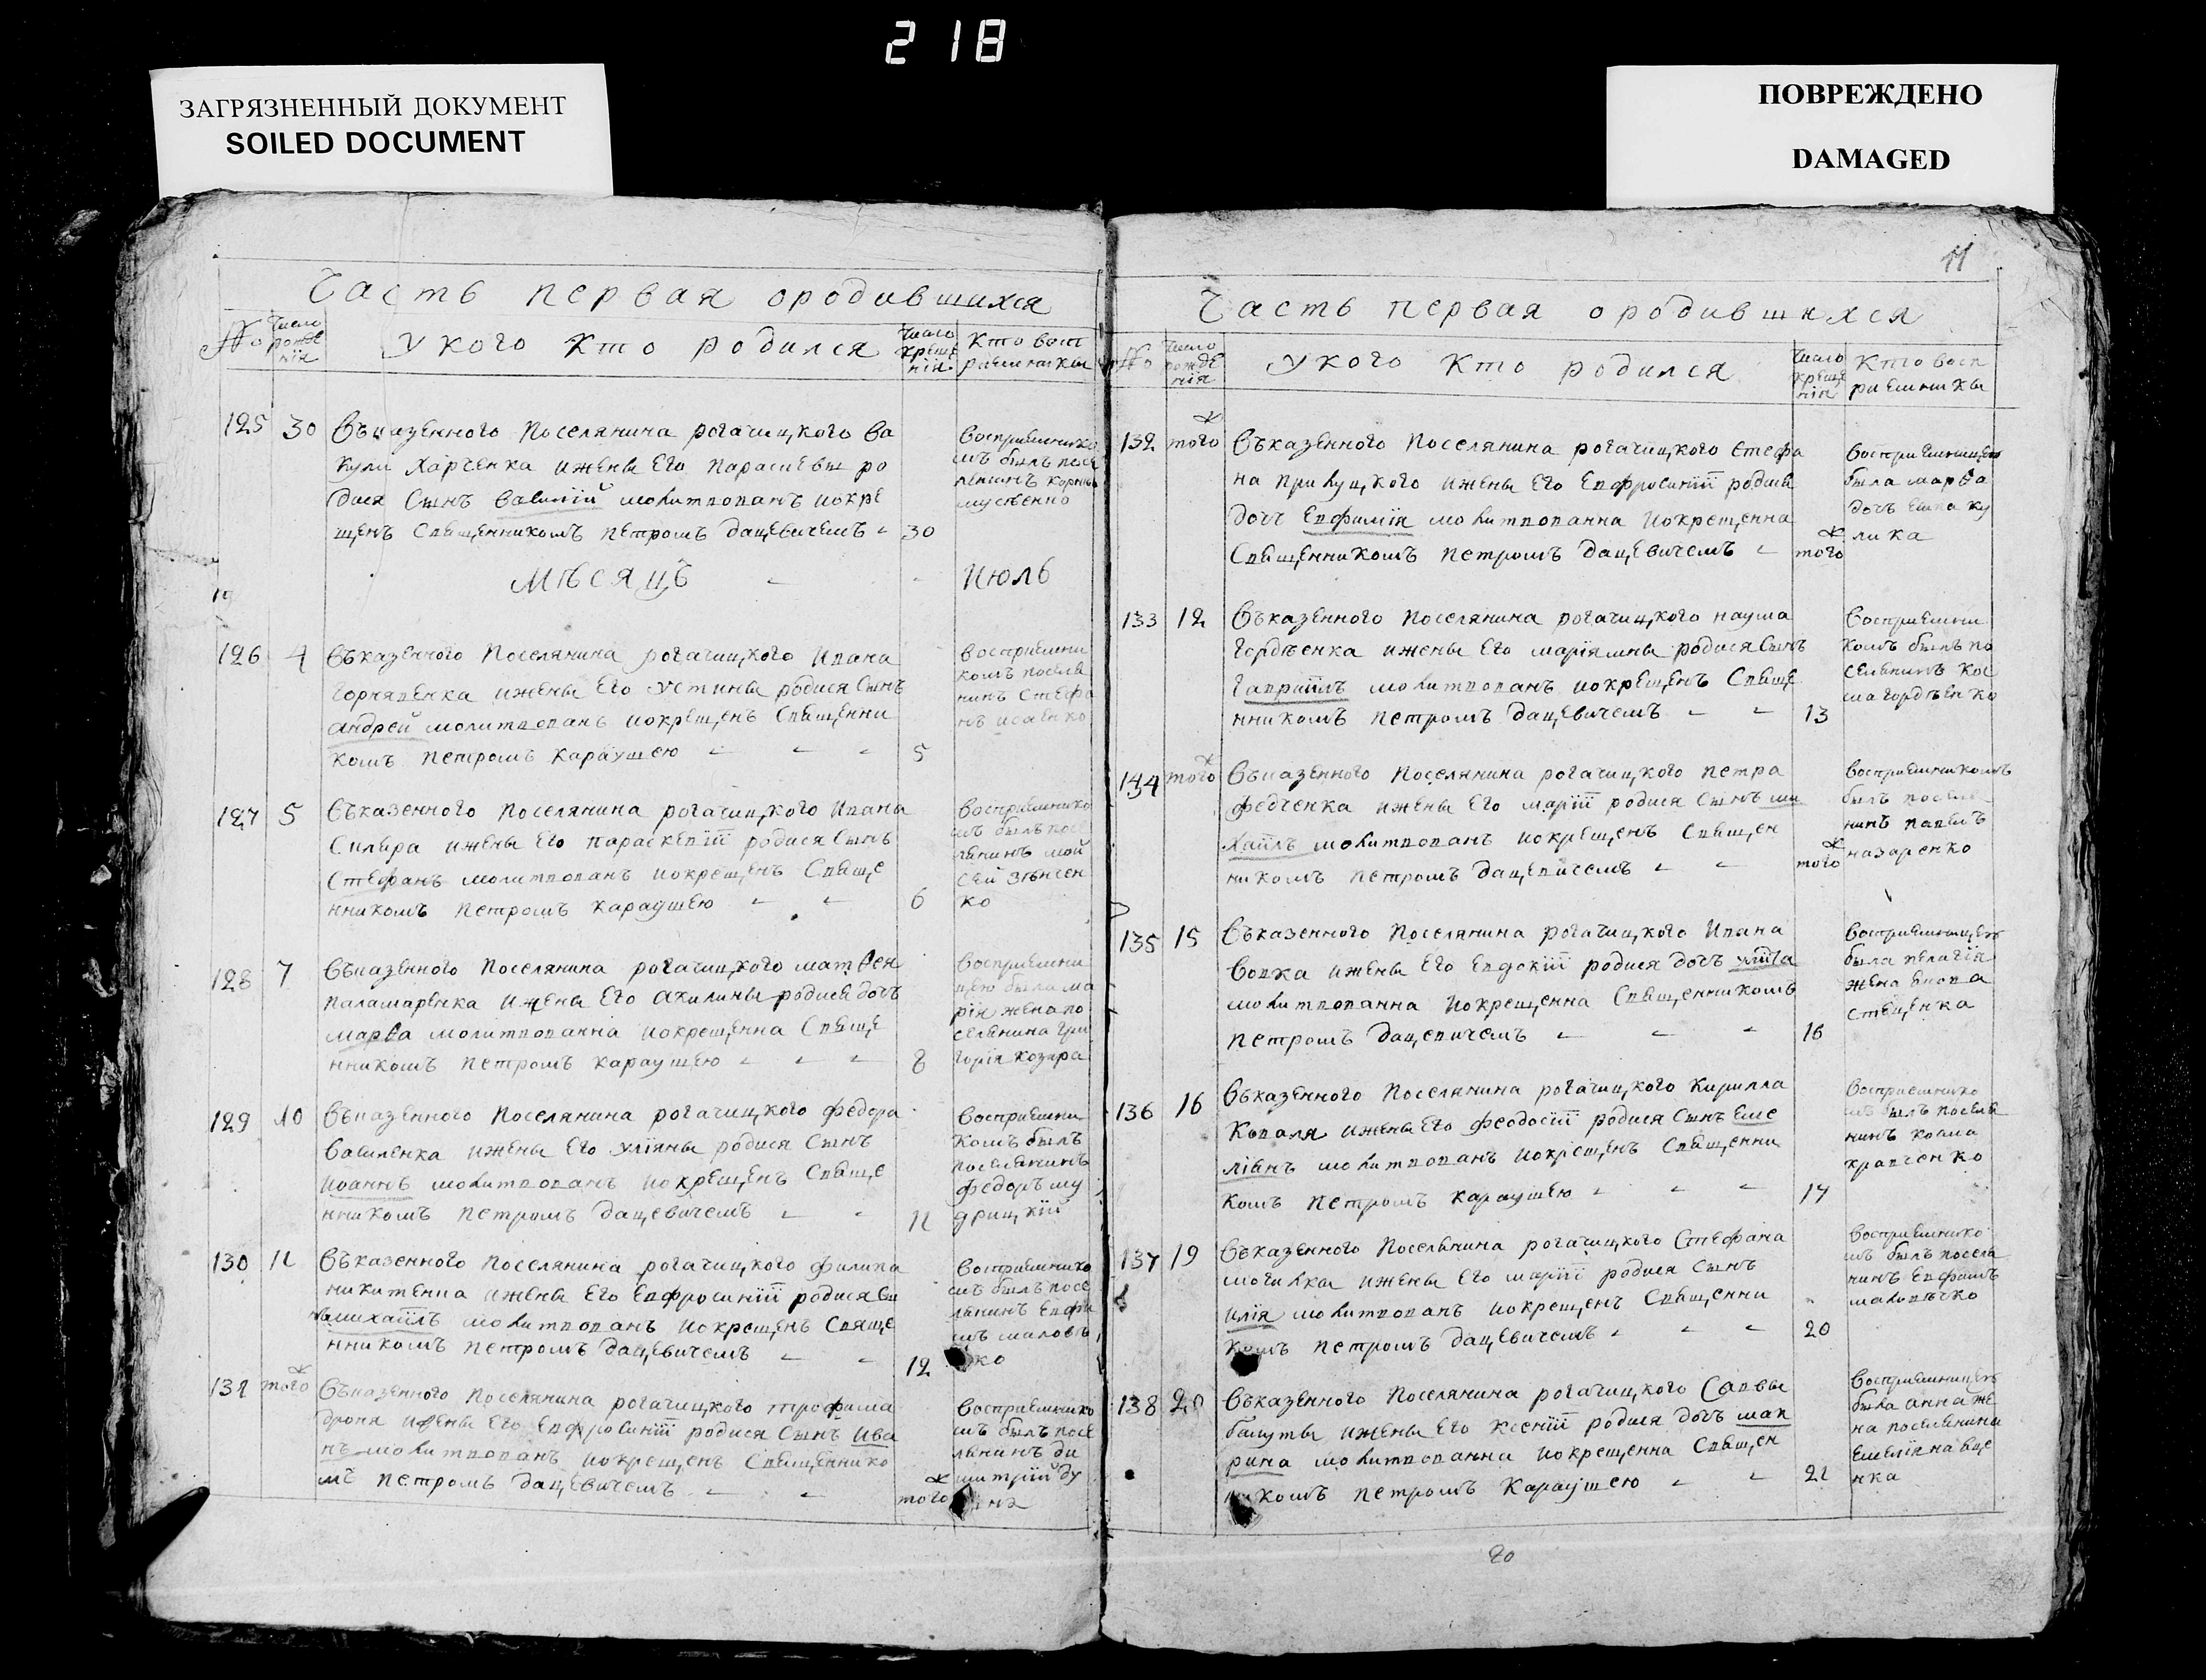 218
ЗАГРЯЗНЕННЫЙ ДОКУМЕНТ
SOILED DOCUMENT
ПОВРЕЖДЕНО
DAMAGED
Часть первая ородившихся
№ Число рождения
У кого кто родился
Число крещения
Кто восприемники
125 30
Въказенного поселянина рогачицкого Ва
кули Харченка ижены Его Парасиевы ро
дися Сынъ Василій молитвованъ икоре
щенъ Священникомъ Петромъ Дацевичемъ
30
Восприемнико
мъ былъ посе
лянинъ
Мѣсяцъ Июль
126 4
Въказенного Поселянина рогачицкого Ивана
Горяченка ижены Его Устины родися Сынъ
Андрей молитвованъ икрещенъ Священни
комъ Петромъ Караушею
5
Восприемни
комъ поселя
нинъ Стефа
нъ исаенко
127 5
Въказенного Поселянина рогачицкого Ивана
ижены Его Параскевіи родися Сынъ
Стефанъ молитвованъ икрещенъ Свяще
нникомъ Петромъ Караушею
6
Восприемнико
мъ былъ посе
лянинъ мой
сей
ко
128 7
Въказенного Поселянина рогачицкого Матвея
Паламаренка ижены Его Акилины родися дочь
Марѳа молитвованна икрещенна Свяще
нникомъ Петромъ Караушею
8
Восприемни
цею была ма
рія жена по
селянина Гри
горія козира
129 10
Въказенного Поселянина рогачицкого Федора
Василенка ижены Его Уліяны родися Сынъ
Иоаннъ молитвованъ икрещенъ Свяще
нникомъ Петромъ Дацевичемъ
11
Восприемни
комъ былъ
поселянинъ
Федоръ му
дрицкій
130 11
Въказенного Поселянина рогачицкого Филипа
никитенка ижены Его Евфросиніи родися Сы
михаилъ молитвованъ икрещенъ Свяще
нникомъ Петромъ Дацевичемъ
12
Восприемнико
мъ былъ посе
лянинъ Евфи
мъ маловѣ
ко
131 того
Въказенного Поселянина рогачицкого трофима
ижены Его Евфросиніи родися Сынъ Ива
нъ молитвованъ икрещенъ Священнико
мъ Петромъ Дацевичемъ
того
Восприемнико
мъ былъ посе
лянинъ ди
митрій ду
11
Часть первая ородившихся
№ Число рождения
У кого кто родился
Число крещения
Кто восприемники
132 того
Въказенного Поселянина рогачицкого Стефа
на ижены Его Евфросиніи родися
дочъ Евфимія молитвованна икрещенна
Священникомъ Петромъ Дацевичемъ
того
Восприемницею
была марѳа
дочъ
133 12
Въказенного Поселянина рогачицкого наума
Гордѣенка ижены Его маріянны родися Сынъ
Гавріилъ молитвованъ икрещенъ Свяще
нникомъ Петромъ Дацевичемъ
13
Восприемни
комъ былъ по
селянинъ кос
ма гордѣенко
134 того
Въказенного Поселянина рогачицкого Петра
Федченка ижены Его маріи родися Сынъ ми
хаилъ молитвованъ икрещенъ Священ
никомъ Петромъ Дацевичемъ
того
Восприемникомъ
былъ поселя
нинъ Павелъ
назаренко
135 15
Въказенного Поселянина рогачицкого Ивана
Вовка ижены Его Евдокіи родися дочъ
молитвованна икрещенна Священникомъ
Петромъ Дацевичемъ
16
Восприемницею
была пелагія
жена
стеценка
136 16
Въказенного Поселянина рогачицкого Кирилла
Коваля ижены Его Феодосіи родися Сынъ Еме
ліянъ молитвованъ икрещенъ Священни
комъ Петромъ Караушею
17
Восприемнико
мъ былъ поселя
нинъ косма
кравченко
137 19
Въказенного Поселянина рогачицкого Стефана
могилки ижены Его маріи родися Сынъ
Илія молитвованъ икрещенъ Священни
комъ Петромъ Дацевичемъ
20
Восприемнико
мъ былъ поселя
нинъ Евфимъ
маловѣчко
138 20
Въказенного Поселянина рогачицкого Саввы
ижены Его Ксеніи родися дочъ мак
рина молитвованна икрещенна Священ
никомъ Петромъ Караушею
21
Восприемницею
была анна же
на поселянина
Емелія
нка
20